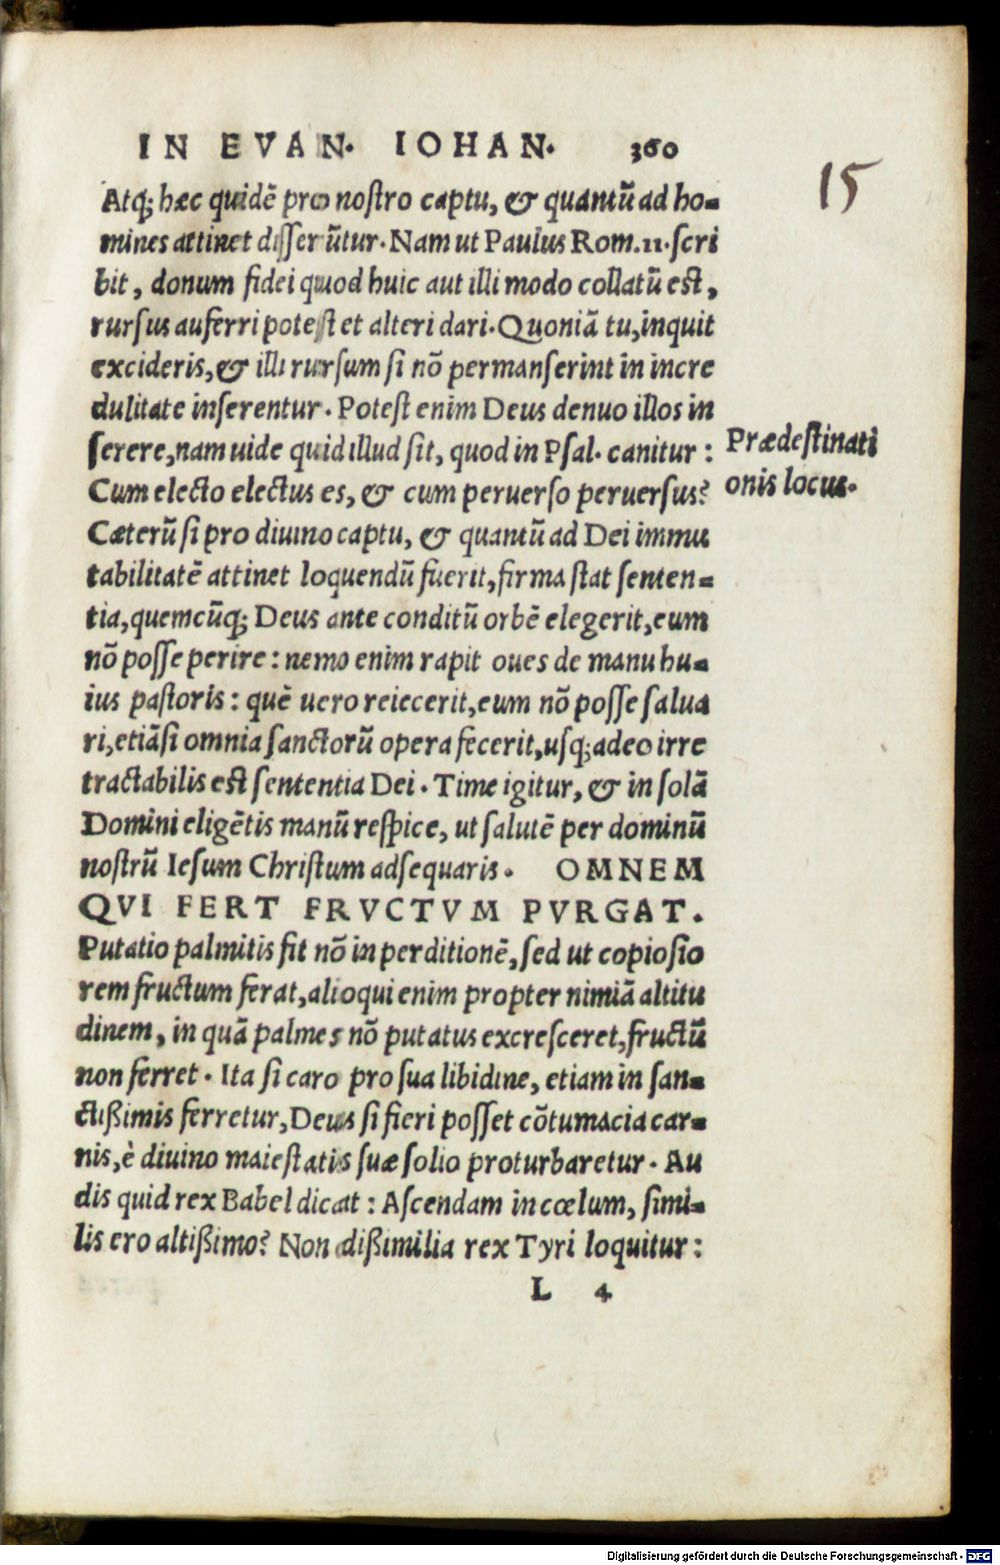 IN EVAN. IOHAN. 360
15
Atq; hæc quidē pro nostro captu, & quantũ ad ho-
mines attinet disserũtur. Nam ut Paulus Rom. 11. scri
bit, donum fidei quod huic aut illi modo collatũ est,
rursus auferri potest et alteri dari. Quoniã tu, inquit
excideris, & illi rursum si nõ permanserint in incre
dulitate inserentur. Potest enim Deus denuo illos in
serere, nam uide quid illud sit, quod in Psal. canitur:
Prædestinati
onis locus.
Cum electo electus es, & cum peruerso peruersus?
Cæterũ si pro diuino captu, & quantũ ad Dei immu
tabilitatē attinet loquendũ fuerit, firma stat senten-
tia, quemcũq; Deus ante conditũ orbē elegerit, eum
nõ posse perire: nemo enim rapit oues de manu hu-
ius pastoris: quē uero reiecerit, eum nõ posse salua
ri, etiãsi omnia sanctorũ opera fecerit, usq; adeo irre
tractabilis est sententia Dei. Time igitur, & in solã
Domini eligētis manũ respice, ut salutē per dominũ
nostrũ Iesum Christum adsequaris. OMNEM
QVI FERT FRVCTVM PVRGAT.
Putatio palmitis fit nõ in perditionē, sed ut copiosio
rem fructum ferat, alioqui enim propter nimiã altitu
dinem, in quã palmes nõ putatus excresceret, fructũ
non ferret. Ita si caro pro sua libidine, etiam in san-
ctißimis ferretur, Deus si fieri posset cõtumacia car-
nis, è diuino maiestatis suæ solio proturbaretur. Au
dis quid rex Babel dicat: Ascendam in cœlum, simi-
lis ero altißimo? Non dißimilia rex Tyri loquitur:
L 4
Digitalisierung gefördert durch die Deutsche Forschungsgemeinschaft - DFG